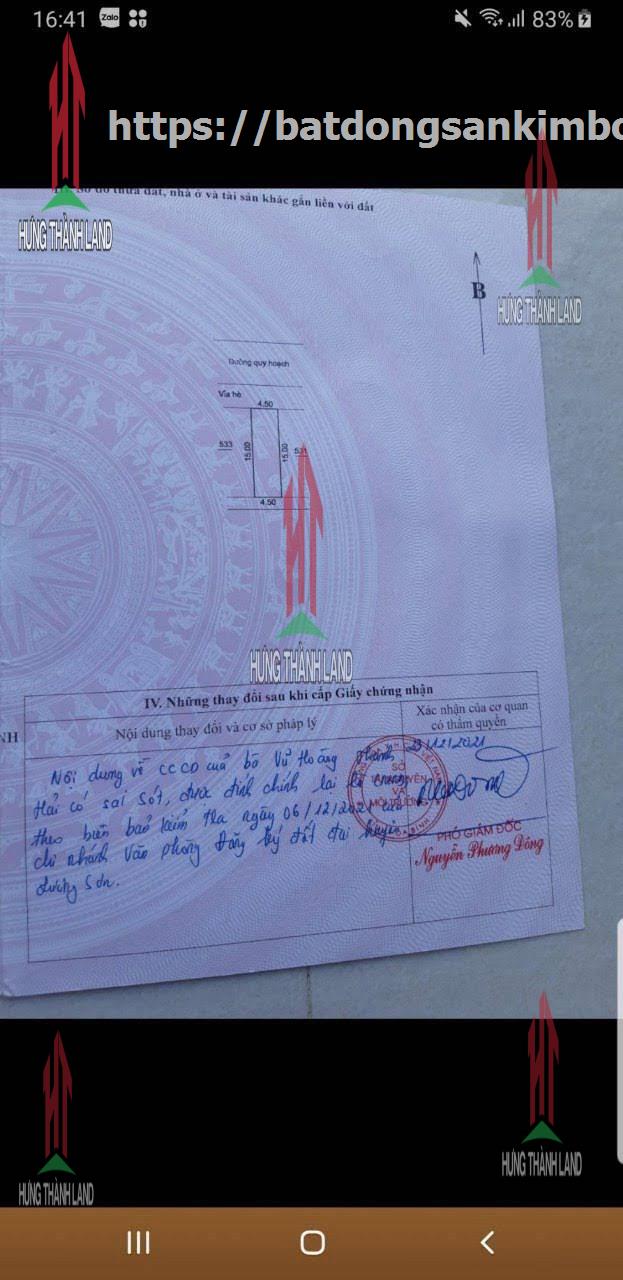 16:41 Zalo 83%
https://batdongsankimbo
III. Sơ đồ thửa đất, nhà ở và tài sản khác gắn liền với đất
HƯNG THÀNH LAND
HƯNG THÀNH LAND
B
Đường quy hoạch
Vỉa hè
4.50
533
15.00
15.00
531
4.50
HƯNG THÀNH LAND
IV. Những thay đổi sau khi cấp Giấy chứng nhận
NH
Nội dung thay đổi và cơ sở pháp lý
Xác nhận của cơ quan
có thẩm quyền
Nội dung về CCCD của bà Vũ Hoàng
Hải có sai sót, được đính chính lại
theo biên bản kiểm tra ngày 06/12/2021 của
chi nhánh Văn phòng Đăng ký đất đai huyện
Lương Sơn.
23/12/2021
SỞ
TÀI NGUYÊN
VÀ
MÔI TRƯỜNG
PHÓ GIÁM ĐỐC
Nguyễn Phương Đông
HƯNG THÀNH LAND
HƯNG THÀNH LAND